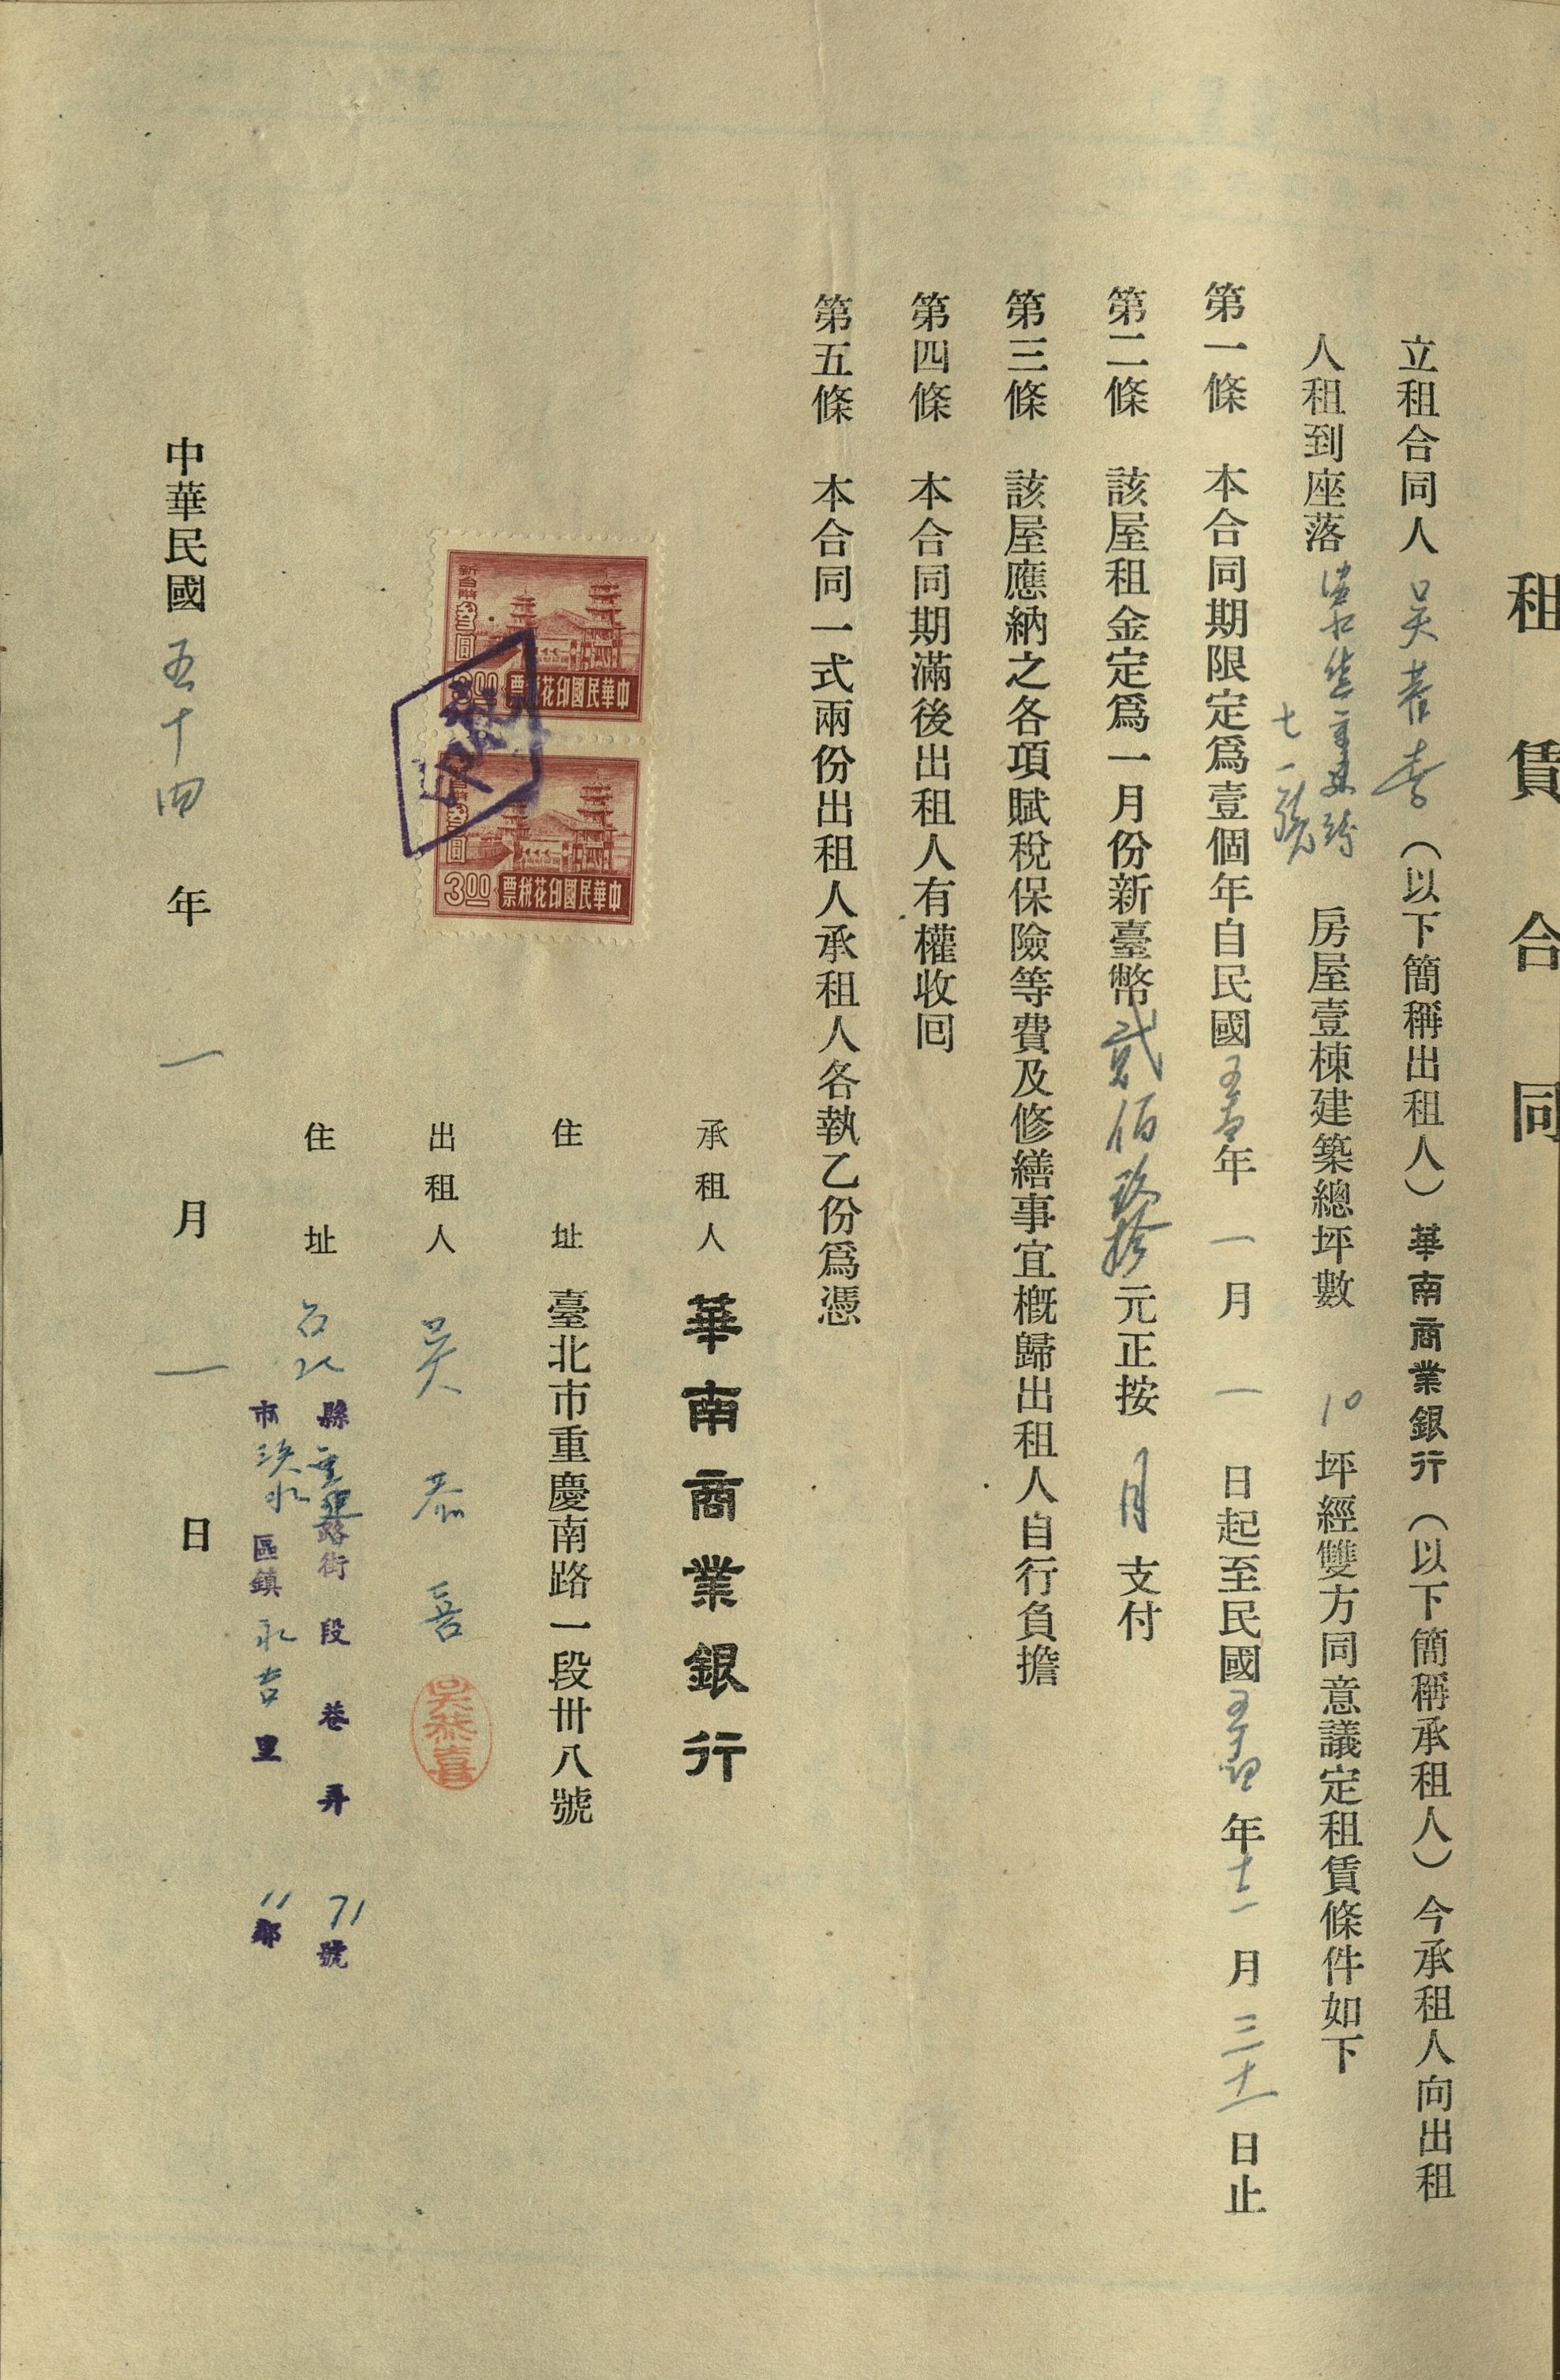 租賃合同
立租合同人吳恭喜（以下簡稱出租人）華南商業銀行（以下簡稱承租人）今承租人向出租
人租到座落淡水鎮重建街
七一號
房屋壹棟建築總坪數 10 坪經雙方同意議定租賃條件如下
第一條 本合同期限定爲壹個年自民國五十四年一月一日起至民國五十四年十二月三十一日止
第二條 該屋租金定爲一月份新臺幣貳佰玖拾元正按月支付
第三條 該屋應納之各項賦稅保險等費及修繕事宜概歸出租人自行負擔
第四條 本合同期滿後出租人有權收囘
第五條 本合同一式兩份出租人承租人各執乙份爲憑
承租人 華南商業銀行
住址 臺北市重慶南路一段卅八號
出租人 吳恭喜
吳恭喜
住址 台北縣重建路街 段 巷 弄 71號
市淡水區鎮永吉里 11鄰
中華民國五十四年一月一日
新台幣叁圓
3.00
中華民國印花稅票
新台幣叁圓
3.00
中華民國印花稅票